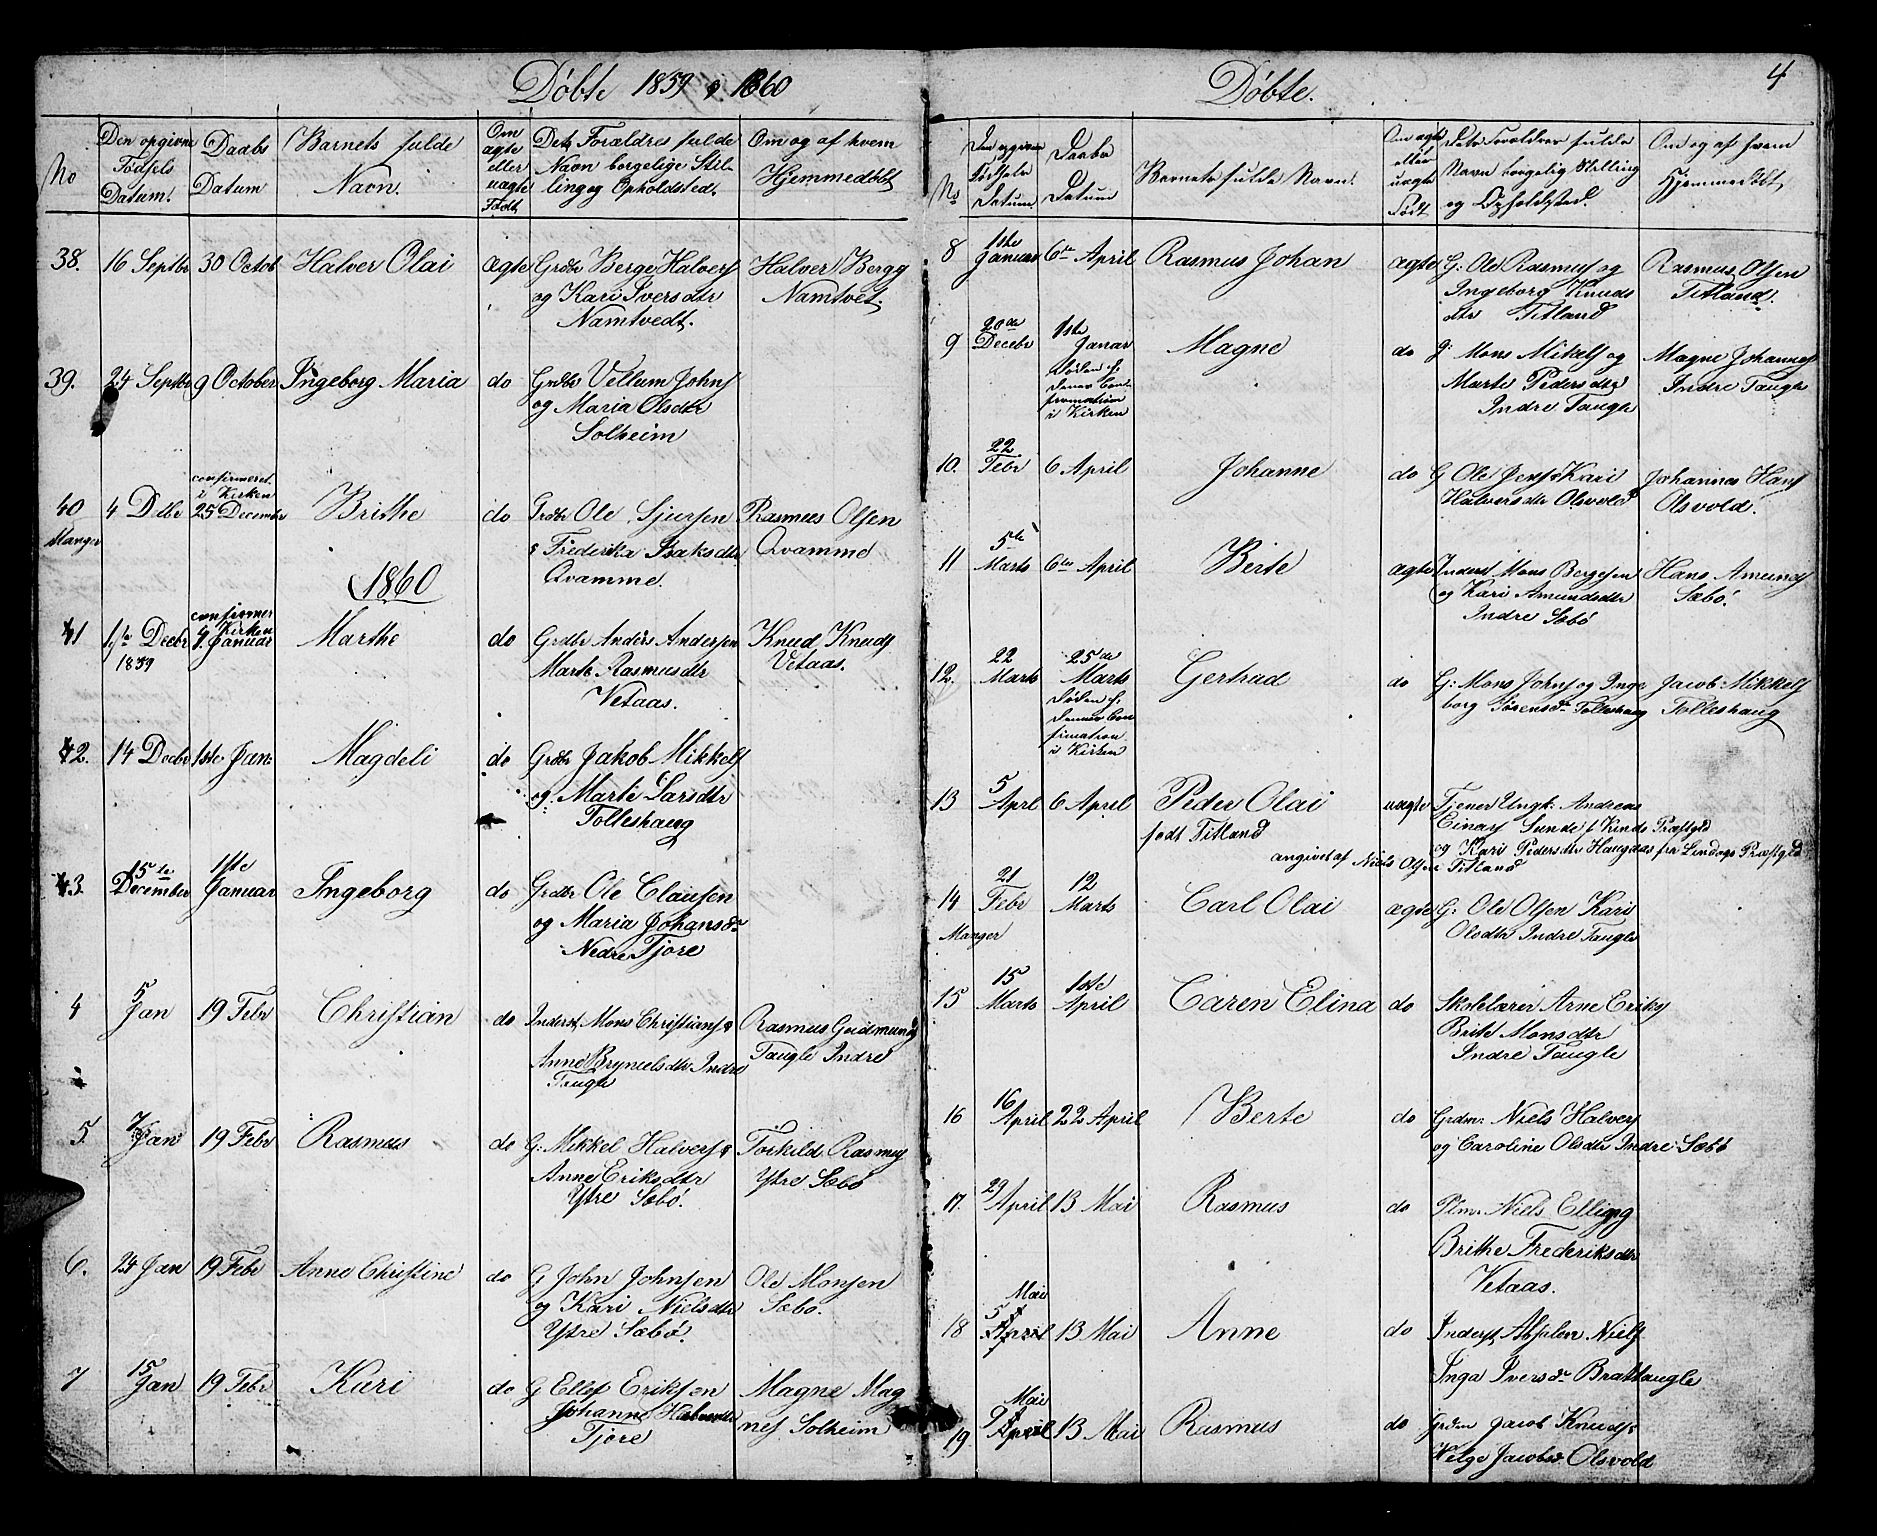 Døbte 1859 & 1860
No
Den opgivne Fødsels Datum.
Daabs Datum
Barnets fulde Navn.
Om ægte eller uægte Født
Dets Forældres fulde Navn borgelige Stilling og Opholdsted.
Om og af hvem Hjemmedøbt
38. 16 Septbr 30 Octob Halver Olai ægte Grdbr Berge Halvers Halver Bergs
og Kari Iversdtr Namtvet.
Namtvedt.
39. 24 Septbr 9 October Ingeborg Maria do Grdbr Vellum Johns
og Maria Olsdtr
Solheim
confirmeret
i Kirken
40 4 Dcbr 25 December Brithe do Grdbr Ole Sjursen Rasmus Olsen
Manger & Frederika Isaksdtr Qvamme
Qvamme.
1860
confirmer
i Kirken
41 Decbr 1. Januar Marthe do Grdbr Anders Andersen Knud Knuds
1859 Marte Rasmusdtr Vetaas.
Vetaas.
42. 14 Decbr 1ste Jan: Magdeli do Grdbr Jakob Mikkels
og Marte Larsdtr
Tolleshaug
15de 1ste
43. December Januar Ingeborg do Grdbr Ole Clausen
og Maria Johansdr
Nedre Tjore
4 5 Jan 19 Febr Christian do Inderst Mons Christians & Rasmus Gudmunds
Anne Brynielsdtr Indre Taugle Indre
Taugle
5. 7 Jan 19 Febr Rasmus do G: Mikkel Halvers & Torkild Rasmus
Anne Eriksdtr Ytre Sæbø
Ytre Sæbø.
6. 24 Jan 19 Febr Anne Christine do G John Johnsen Ole Monsen
og Kari Nielsdtr Sæbø.
Ytre Sæbø.
7 15 Jan 19 Febr Kari do G Ellef Eriksen Magne Mag
Johanne Halversdtr nes Solheim
Tjore
4
Døbte.
No
Den opgivne Fødsels Datum
Daabs Datum
Barnets fulde Navn.
Om ægte eller uægte Født
Dets Forældres fulde Navn borgelig Stilling og Opholdsted.
Om og af hvem Hjemmedøbt
8 1ste Januar 6te April Rasmus Johan ægte G: Ole Rasmus og Rasmus Olsen
Ingeborg Knuds Titland.
dtr Titland
9 20de Decebr 1ste Januar Magne do g: Mons Mikels og Magne Johannes
Marte Pedersdtr Indre Taugle
i Kirken Indre Taugle
10. 22 Febr 6 April Johanne do G Ole Jens & Kari Johannes Hans
Halversdtr Olsvold Olsvold.
11 5te Marts 6te April Berte ægte Inderst Mons Bergesen Hans Amunds
og Kari Amundsdtr Sæbø.
Indre Sæbø
12. 22 Marts 25de Marts Gertrud do G: Mons Johns og Inge Jacob Mikkels
borg Sørensdr Tolleshaug Tolleshaug
i Kirken
13 5 Aprl 6 April Peder Olai uægte Tjener Ungk: Andreas
født Titland Einars Sunde f Kinds Præstgld
og Kari Pedersdtr Haugaas fra Lindaas Præstgld
angivet af Niels Olsen Titland
14 21 Febr 12 Marts Carl Olai ægte G: Ole Olsen Kari
Manger Olsdtr Indre Taugle
15 15 Marts 1ste April Caren Elina do Skolelærer Arne Eriks
Brite Monsdtr
Indre Taugle
16 16 April 22 April Berte do Grdm: Niels Halvers
og Caroline Olsdtr Indre Sæbø
17. 29 April 13 Mai Rasmus do Plm: Niels Ellings
Brithe Frederiksdtr
Vetaas.
Mai
18 5 April 13 Mai Anne do Inderst Absalon Niels
Inga Iversdr Brattaugle
Mai
19 9 April 13 Mai Rasmus do Grdm Jacob Knuds
Helge Jacobsdr Olsvold